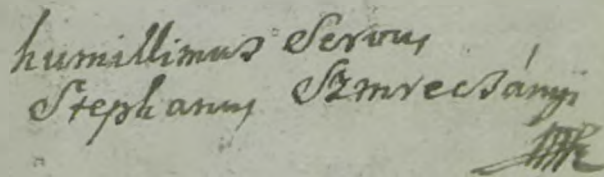 humillimus Servus
Stephanus Szmrecsányi